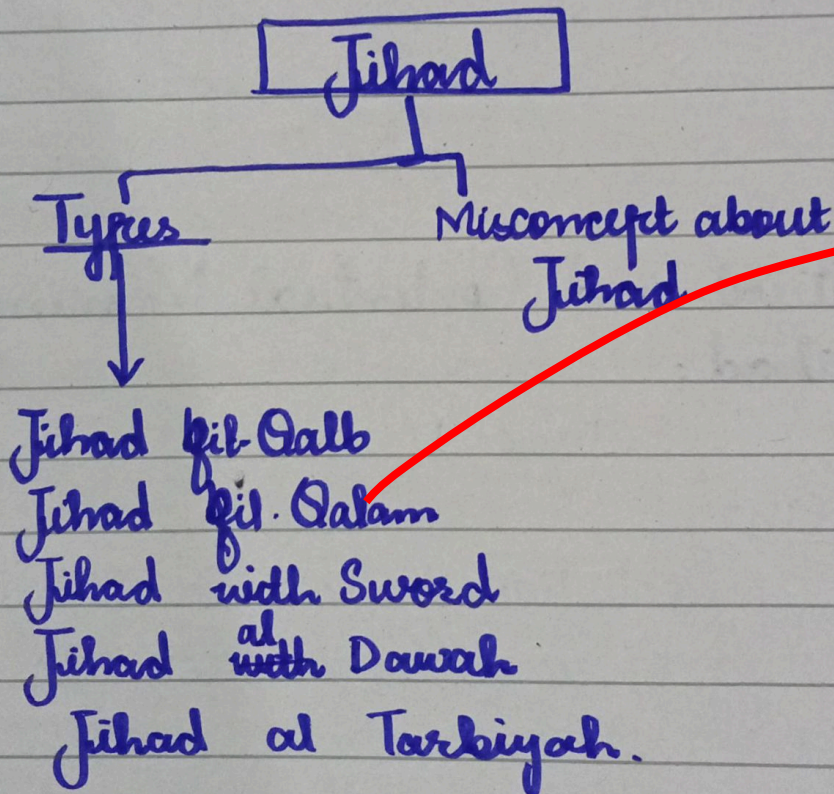 Jihad
Types
Misconcept about
Jihad
Jihad fil-Qalb
Jihad fil. Qalam
Jihad with Sword
Jihad al with Dawah
Jihad al Tarbiyah.